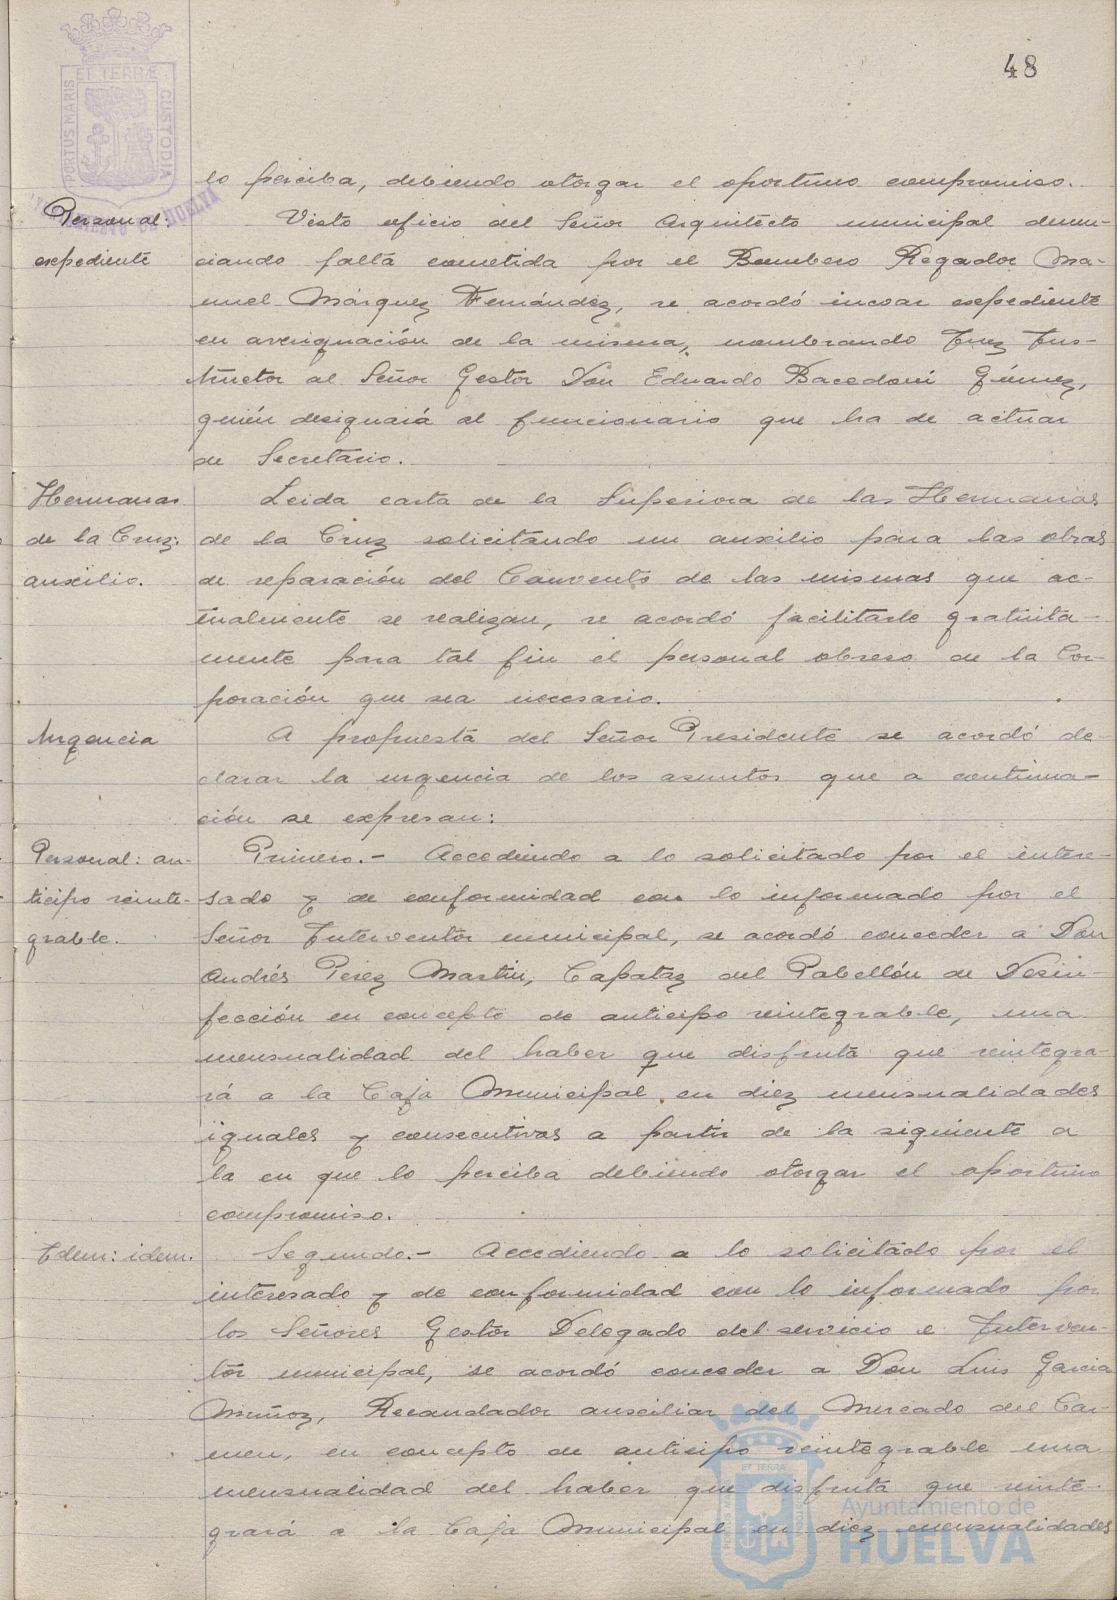 48
PORTUS MARIS ET TERRÆ CUSTODIA
HUELVA
lo perciba, debiendo otorgar el oportuno compromiso.
Personal:
expediente
Visto oficio del Señor Arquitecto municipal denun-
ciando falta cometida por el Bombero Regador Ma-
nuel Márquez Fernández, se acordó incoar expediente
en averiguación de la misma, nombrando Juez Ins-
tructor al Señor Gestor Don Eduardo Gómez,
quién designará al funcionario que ha de actuar
de Secretario.
Hermanas
de la Cruz:
auxilio.
Leida carta de la Superiora de las Hermanas
de la Cruz solicitando un auxilio para las obras
de reparación del Convento de las mismas que ac-
tualmente se realizan, se acordó facilitarle gratuita-
mente para tal fin el personal obrero de la Cor-
poración que sea necesario.
Urgencia
A propuesta del Señor Presidente se acordó de-
clarar la urgencia de los asuntos que a continua-
ción se expresan:
Personal: an-
ticipo reinte-
grable.
Primero.- Accediendo a lo solicitado por el intere-
sado y de conformidad con lo informado por el
Señor Interventor municipal, se acordó conceder a Don
Andrés Pérez Martin, Capataz del Pabellón de Desin-
fección en concepto de anticipo reintegrable, una
mensualidad del haber que disfruta que reintegra-
rá a la Caja Municipal en diez mensualidades
iguales y consecutivas a partir de la siguiente a
la en que lo perciba debiendo otorgar el oportuno
compromiso.
Idem: idem.
Segundo.- Accediendo a lo solicitado por el
interesado y de conformidad con lo informado por
los Señores Gestor Delegado del servicio e Interven-
tor municipal, se acordó conceder a Don Luis Garcia
Muñoz, Recaudador auxiliar del Mercado del Car-
men, en concepto de anticipo reintegrable una
mensualidad del haber que disfruta que reinte-
grará a la Caja Municipal en diez mensualidades
Ayuntamiento de
HUELVA